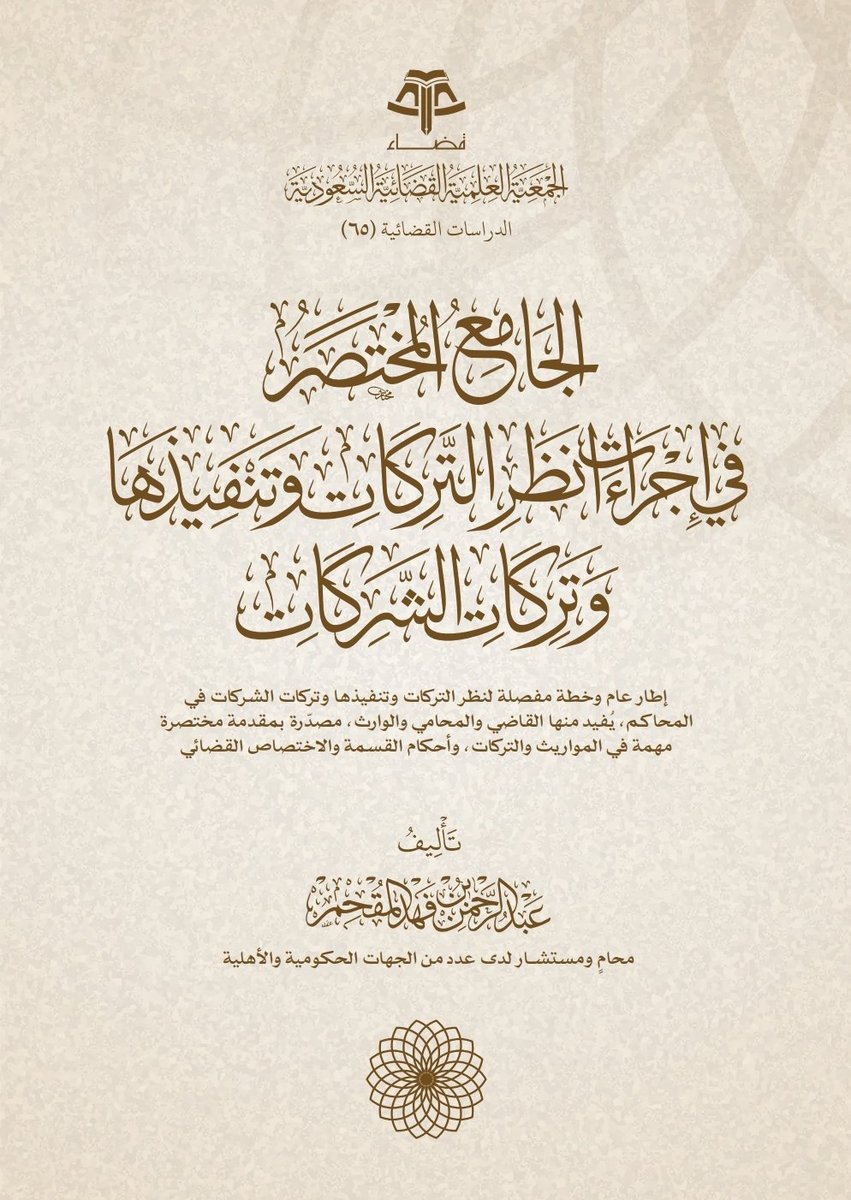 قضاء
الجمعية العلمية القضائية السعودية
الدراسات القضائية (٦٥)
الجَامِعُ المُخْتَصَرُ
فِي إِجْرَاءَاتِ نَظَرِ التَّرِكَاتِ وَتَنْفِيذِهَا
وَتَرِكَاتِ الشَّرِكَاتِ
إطار عام وخطة مفصلة لنظر التركات وتنفيذها وتركات الشركات في
المحاكم، يُفيد منها القاضي والمحامي والوارث، مصدّرة بمقدمة مختصرة
مهمة في المواريث والتركات، وأحكام القسمة والاختصاص القضائي
تَأْلِيفُ
عَبْدِ الرَّحْمٰنِ بْنِ فَهْدٍ المُقْحِمِ
محامٍ ومستشار لدى عدد من الجهات الحكومية والأهلية